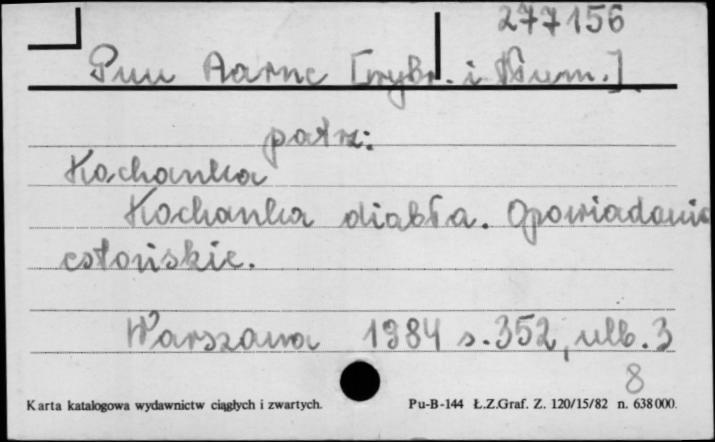 277156
Puu Aarne [wybr. i tłum.]
patrz:
Kochanka
Kochanka diabła. Opowiadania
estońskie.
Warszawa 1984 s. 352, ulb. 3
8
Karta katalogowa wydawnictw ciągłych i zwartych.
Pu-B-144 Ł.Z.Graf. Z. 120/15/82 n. 638000.